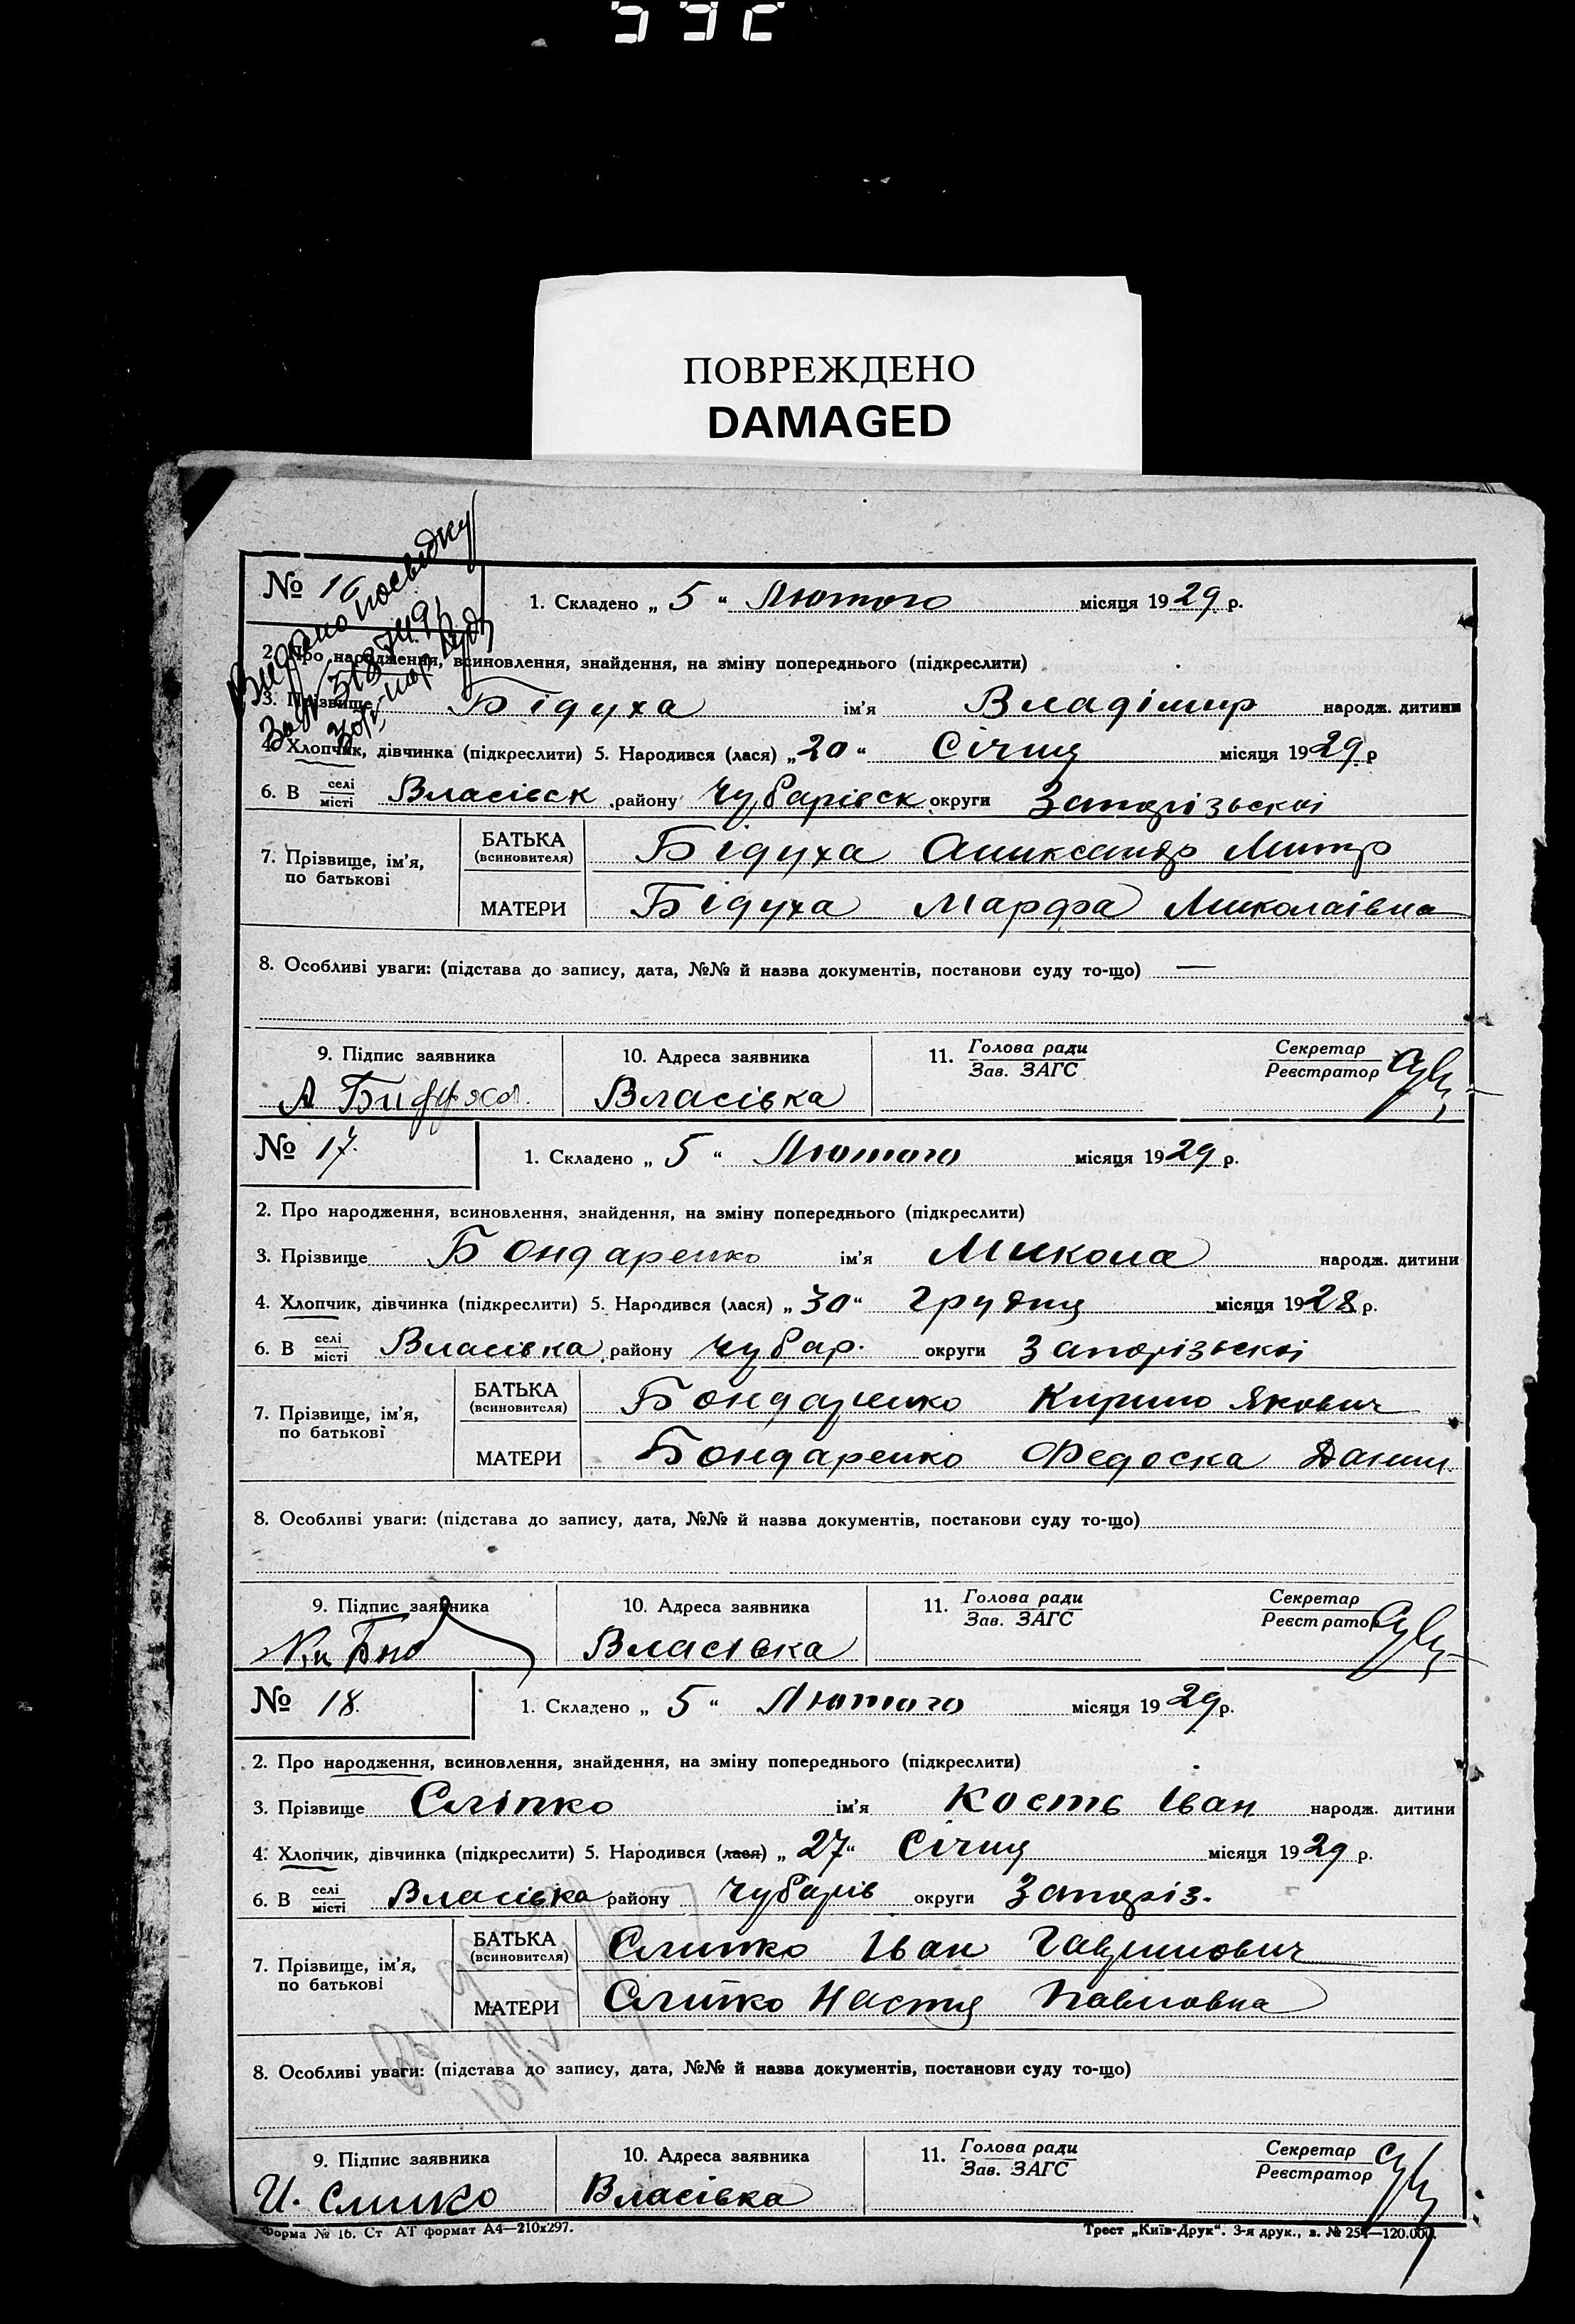 ПОВРЕЖДЕНО
DAMAGED
Видано посвідку
№ 16
1. Складено „ 5 “ Лютого місяця 1929 р.
2. Про народження, всиновлення, знайдення, на зміну попереднього (підкреслити)
3. Прізвище Бідуха ім'я Владімир народж. дитини
4. Хлопчик, дівчинка (підкреслити) 5. Народився (лася) „ 20 “ Січня місяця 1929 р
6. В селі/місті Власівск району Чубарівск округи Запорізьскої
7. Прізвище, ім'я, по батькові
БАТЬКА (всиновителя) Бідуха Аликсандр Митр
МАТЕРИ Бідуха Марфа Миколаівна
8. Особливі уваги: (підстава до запису, дата, №№ й назва документів, постанови суду то-що) —
9. Підпис заявника 10. Адреса заявника 11. Голова ради/Зав. ЗАГС Секретар/Реєстратор
А Власівка
№ 17.
1. Складено „ 5 “ Лютого місяця 1929 р.
2. Про народження, всиновлення, знайдення, на зміну попереднього (підкреслити)
3. Прізвище Бондаренко ім'я Микола народж. дитини
4. Хлопчик, дівчинка (підкреслити) 5. Народився (лася) „ 30 “ Грудня місяця 1928 р.
6. В селі/місті Власівка району Чубар. округи Запорізьскої
7. Прізвище, ім'я, по батькові
БАТЬКА (всиновителя) Бондаренко Кирило Якович
МАТЕРИ Бондаренко Федоска Данил.
8. Особливі уваги: (підстава до запису, дата, №№ й назва документів, постанови суду то-що)
9. Підпис заявника 10. Адреса заявника 11. Голова ради/Зав. ЗАГС Секретар/Реєстратор
Власівка
№ 18.
1. Складено „ 5 “ Лютого місяця 1929 р.
2. Про народження, всиновлення, знайдення, на зміну попереднього (підкреслити)
3. Прізвище Сліпко ім'я Кость Іван народж. дитини
4. Хлопчик, дівчинка (підкреслити) 5. Народився (лася) „ 27 “ Січня місяця 1929 р.
6. В селі/місті Власівка району Чубарів округи Запоріз.
7. Прізвище, ім'я, по батькові
БАТЬКА (всиновителя) Слипко Іван Гаврилович
МАТЕРИ Слипко Настя Павловна
8. Особливі уваги: (підстава до запису, дата, №№ й назва документів, постанови суду то-що)
9. Підпис заявника 10. Адреса заявника 11. Голова ради/Зав. ЗАГС Секретар/Реєстратор
И. Слипко Власівка
Форма № 16. Ст АТ формат А4—210х297. Трест „Київ-Друк“. 3-я друк., з. № 254—120.000.